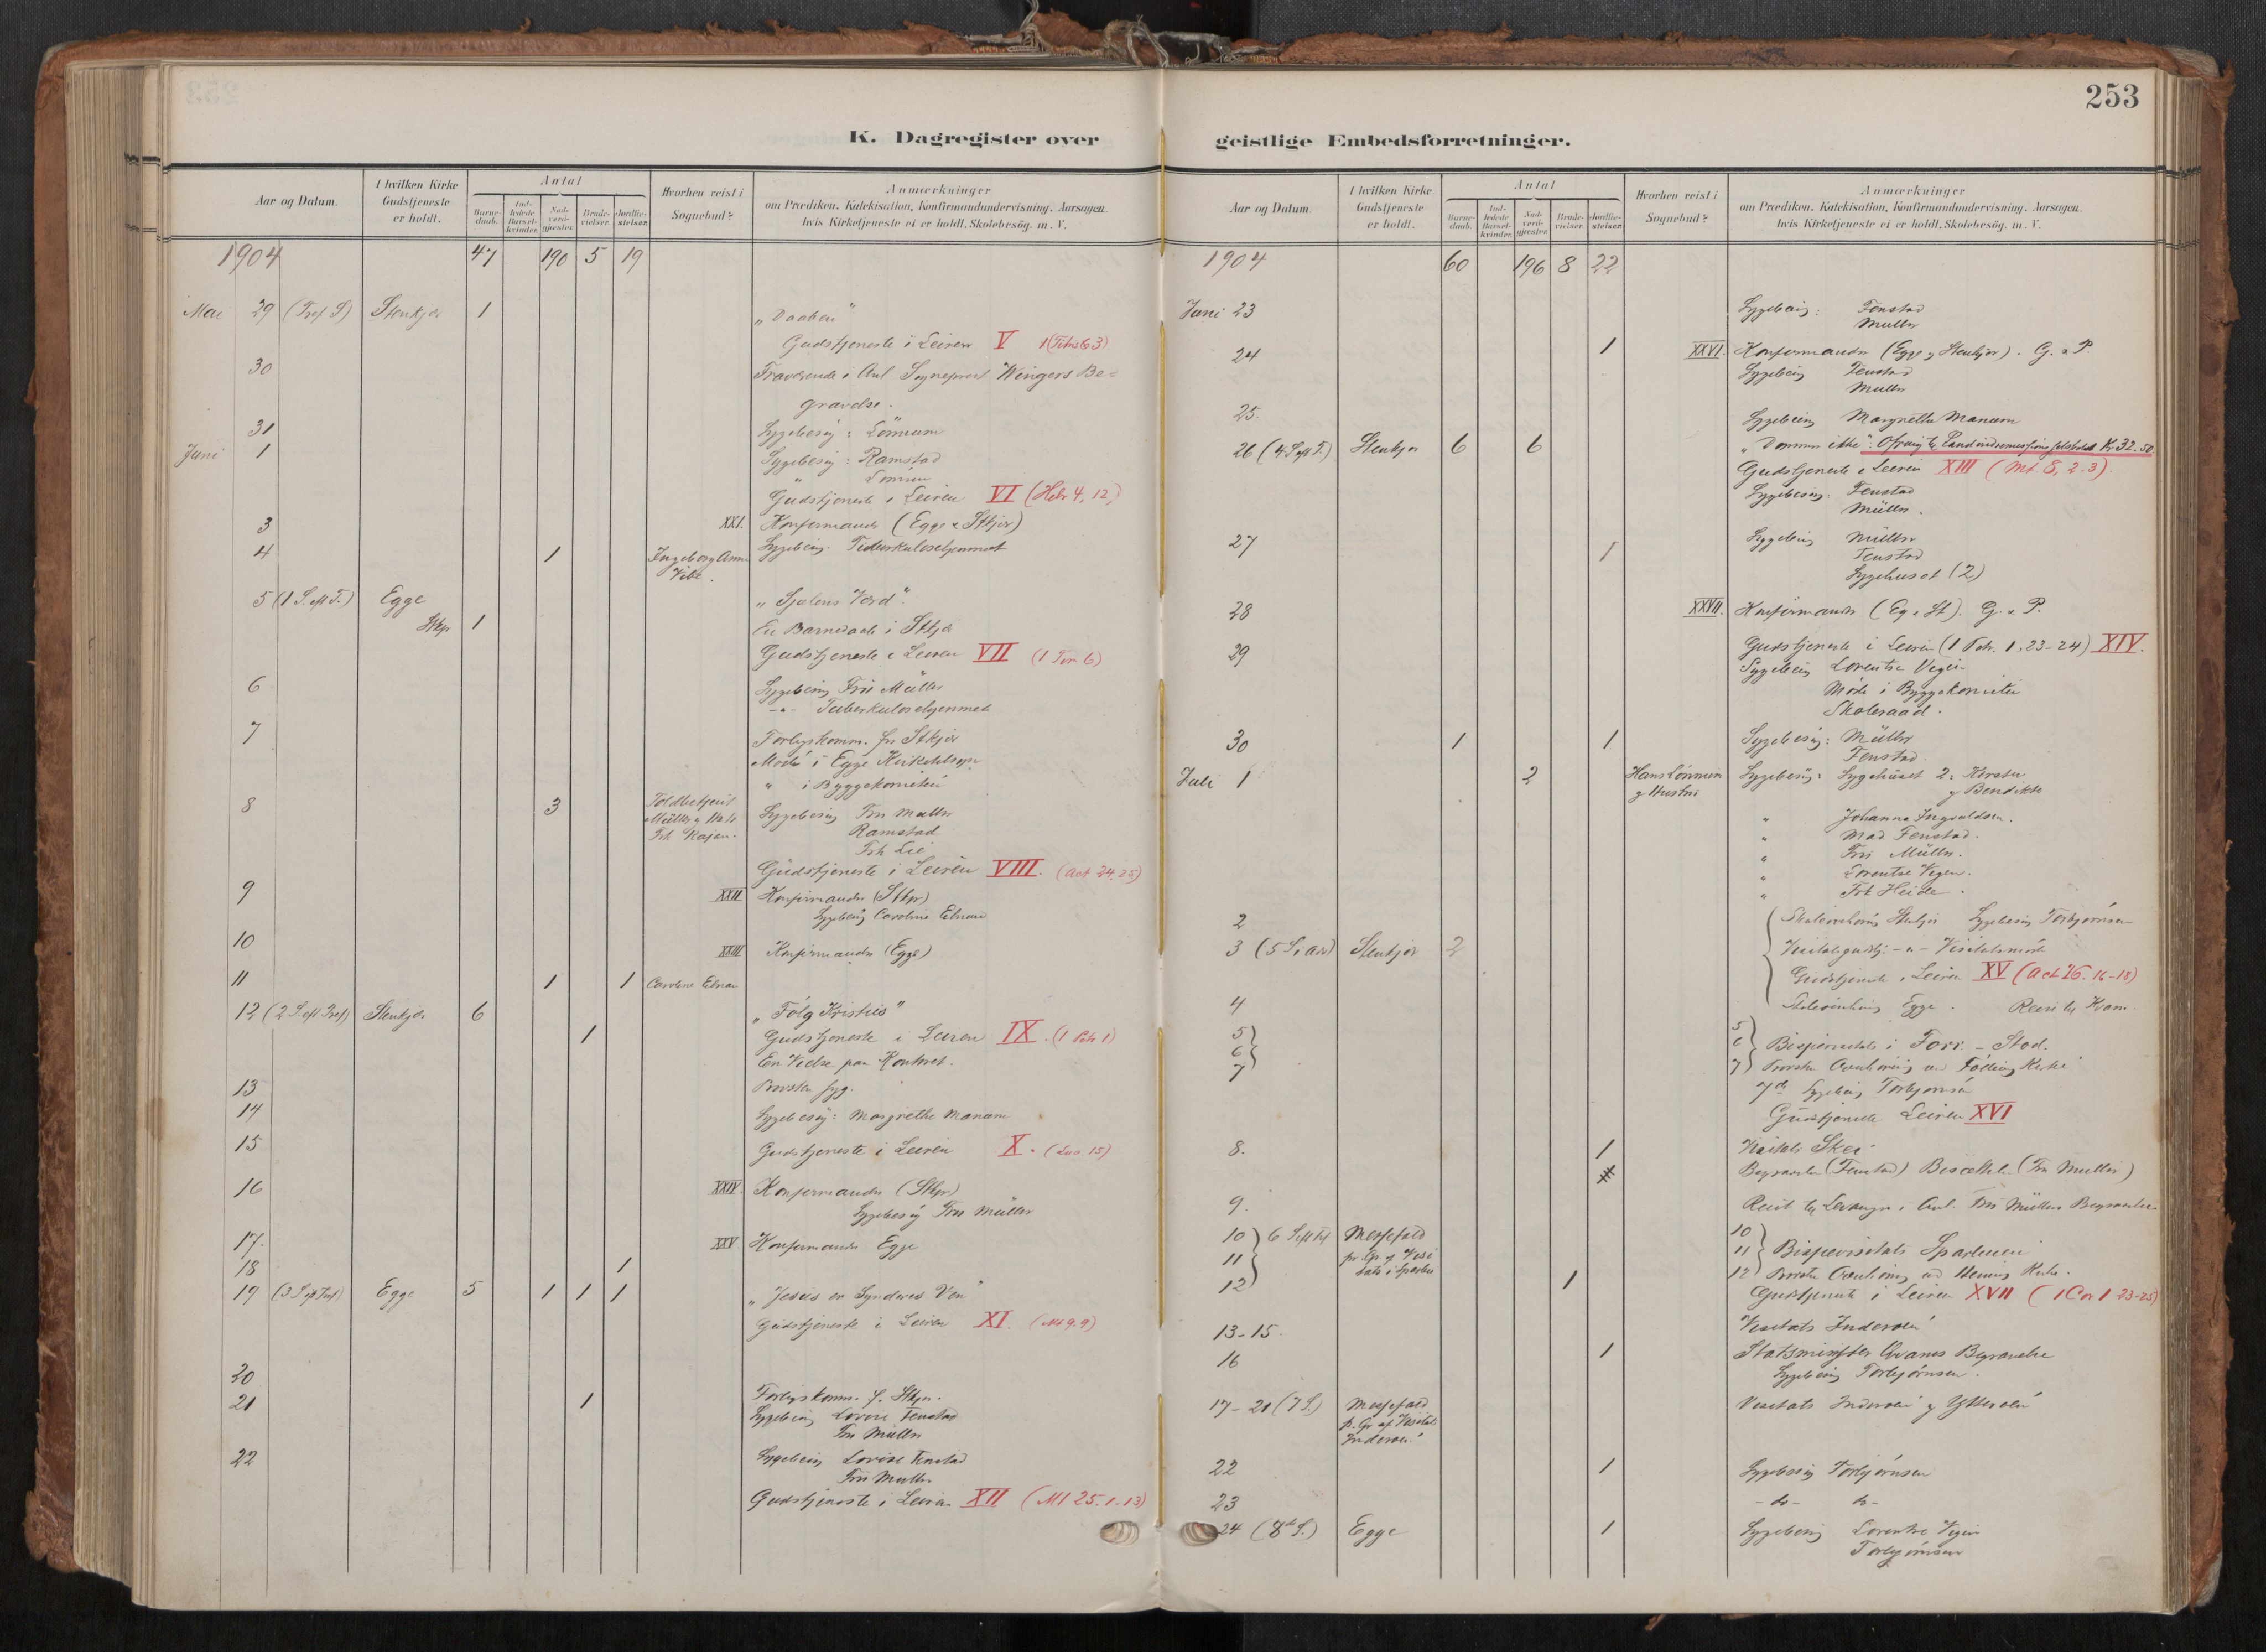 253
K. Dagregister over
geistlige Embedsforretninger.
Aar og Datum.
I hvilken Kirke Gudstjeneste er holdt.
Antal
Barnedaab.
Indledede Barselkvinder.
Nadverdgjester.
Brudevielser.
Jordfæstelser.
Hvorhen reist i Sognebud?
Anmærkninger
om Prædiken. Katekisation, Konfirmandundervisning. Aarsagen,
hvis Kirketjeneste ei er holdt. Skolebesøg. m. V.
1904 47 190 5 19
Mai 29 (Tref S) Stenkjær 1 „Daaben"
Gudstjeneste i Leiren V
30 Fraværende i Anl Sogneprest Wingers Be=
gravelse.
31 Sygebesøg: Lønnum
Juni 1 Sygebesøg: Ramstad
" Lønnum
Gudstjeneste i Leiren VI (Hebr 4, 12)
3 XXI. Konfirmander (Egge & Stkjær)
4 1 Ingeborg Anna Sygebesøg Tuberkulosehjemmet
5 (1 S. eft T.) Egge „Sjælens Værd".
Stkjr 1 En Barnedaab i Stkjær
Gudstjeneste i Leiren VII (1 Tim 6)
6 Sygebesøg Fru Müller
-"- Tuberkulosehjemmet
7 Forligskomm. for Stkjær
Møde i Egge Kirketilsyn
" i Byggekomiteen
8 3 Toldbetjent Sygebesøg Fru Müller
Ramstad
Frk Lie
Gudstjeneste i Leiren VIII. (Act 24, 25)
9 XXII Konfirmander (Stkjr)
Sygebesøg Caroline Elnan
10 XXIII Konfirmander (Egge)
11 1 1 Caroline Elnan
12 (2 S. eft Tref) Stenkjær 6 „Følg Kristus"
1 Gudstjeneste i Leiren IX. (1 Petr 1)
En Vielse paa Kontoret.
13 Provsten syg.
14 Sygebesøg: Margrethe Manum
15 Gudstjeneste i Leiren X. (Luc. 15)
16 XXIV. Konfirmander (Stkjr)
Sygebesøg Fru Müller
17. XXV. Konfirmander Egge
18 1
19 (3 S eft Tref) Egge 5 1 1 1 „Jesus en Synderes Ven"
Gudstjeneste i Leiren XI. (Mt 9. 9)
20
21 1 Forligskomm. f. Stkjr.
Sygebesøg Lovise Fenstad
Fru Müller
22 Sygebesøg Lovise Fenstad
Fru Müller
Gudstjeneste i Leiren XII (Mt 25. 1-13)
Aar og Datum.
I hvilken Kirke Gudstjeneste er holdt.
Antal
Barnedaab.
Indledede Barselkvinder.
Nadverdgjester.
Brudevielser.
Jordfæstelser.
Hvorhen reist i Sognebud?
Anmærkninger
om Prædiken. Katekisation, Konfirmandundervisning. Aarsagen,
hvis Kirketjeneste ei er holdt. Skolebesøg. m. V.
1904 60 196 8 22
Juni 23 Sygebesøg: Fenstad
Müller
24 1 XXVI. Konfirmander (Egge og Stenkjær). G. & P.
Sygebesøg Fenstad
Müller
25. Sygebesøg Margrethe Manum
26 (4 S eft T.) Stenkjær 6 6 „Dømmer ikke": Kr. 32.50
Gudstjeneste i Leiren XIII (Mt. 5, 2. 3).
Sygebesøg: Fenstad
Müller.
27 1 Sygebesøg Müller
Fenstad
Sygehuset (2)
28 XXVII. Konfirmander (Eg & St). G. & P.
29 Gudstjeneste i Leiren (1 Petr. 1, 23-24) XIV.
Sygebesøg Lorentse Vegen
Møde i Byggekomite
Skoleraad.
30 1 1 Sygebesøg: Müller
Fenstad
Juli 1 2 Hans Lønnum og Hustru Sygebesøg: Sygehuset 2: Kirsten
og Bendikte
" Johanna Ingvaldsen.
" Mad Fenstad.
" Fru Müller.
" Lorentse Vegen.
" Frk Heide.
2 Sygebesøg Torbjørnsen
3 (5 S.) Stenkjær 2
Gudstjeneste i Leiren XV (Act 26. 16-18)
4 Egge. Reise til Kvam.
5
6 Bispevisitats i Forr - Stod.
7 Provsten Følling Kirke
7de Sygebesøg Torbjørnsen
Gudstjeneste Leiren XVI
8. 1 Visitats Skei
Begravelse (Fenstad) Bisættelse (Fru Müller)
9. Reist til Levanger i Anl. Fru Müllers Begravelse
10 6 S eft Tref Messefald
11 pr. Gr. af Visitats i Sparbu Bispevisitats Sparbuen
12 1 Provsten ved Henning Kirke.
Gudstjeneste i Leiren XVII (1 Cor 1 23-25)
13-15. Visitats Inderøen
16 1 Statsminister Qvams Begravelse
Sygebesøg Torbjørnsen.
17-21 (7 S.) Messefald Visitats Inderøen og Ytterøen
p. Gr. af Visitats
Inderøen
22 1 Sygebesøg Torbjørnsen
23 -do- do-
24 (8de S.) Egge 1 Sygebesøg Lorentse Vegen
Torbjørnsen